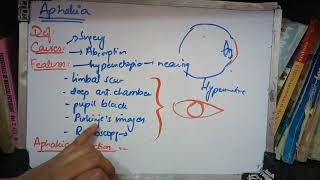 Aphakia
Def:
Causes: → Surgery
→ Absorption
Features: — hypermetropia →
- limbal scar
- deep ant. chamber
- pupil black
- Purkinje's images
Hypermetro
Aphakia